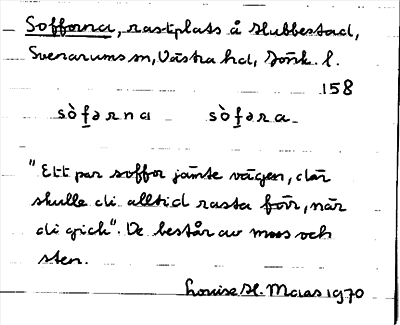 Sofforna, rastplats å Slubbestad,
Svenarums sn, Västra hd, Jönk. l.
158
sòfərna sòfəra
"Ett par soffor jämte vägen, där
skulle di alltid rasta förr, när
di gick". De består av moss och
sten.
Louise H. Maas 1970